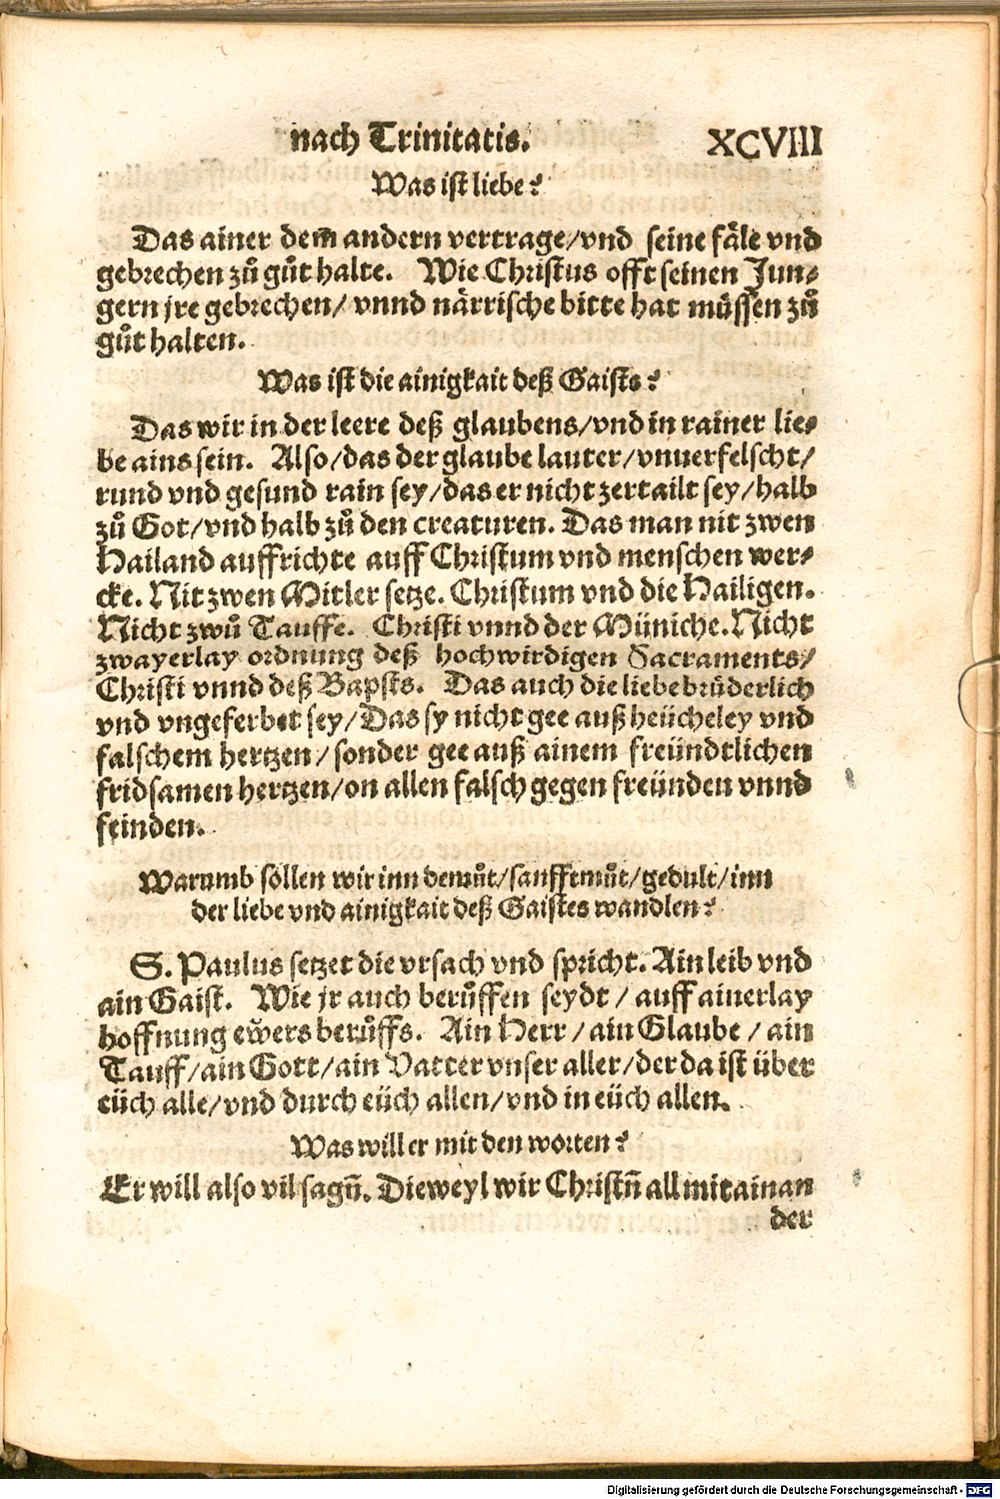 nach Trinitatis. XCVIII
Was ist liebe?
Das ainer dem andern vertrage/vnd seine fäle vnd
gebrechen zů gůt halte. Wie Christus offt seinen Jun⸗
gern jre gebrechen/ vnnd närrische bitte hat müssen zů
gůt halten.
Was ist die ainigkait deß Gaists?
Das wir in der leere deß glaubens/vnd in rainer lie⸗
be ains sein. Also/das der glaube lauter/vnuerfelscht/
rund vnd gesund rain sey/das er nicht zertailt sey/halb
zů Got/vnd halb zů den creaturen. Das man nit zwen
Hailand auffrichte auff Christum vnd menschen wer⸗
cke. Nit zwen Mitler setze. Christum vnd die Hailigen.
Nicht zwů Tauffe. Christi vnnd der Müniche. Nicht
zwayerlay ordnung deß hochwirdigen Sacraments/
Christi vnnd deß Bapsts. Das auch die liebe brüderlich
vnd vngeferbet sey/Das sy nicht gee auß heücheley vnd
falschem hertzen/sonder gee auß ainem freündtlichen
fridsamen hertzen/on allen falsch gegen freünden vnnd
feinden.
Warumb söllen wir inn demůt/sanfftmůt/gedult/inn
der liebe vnd ainigkait deß Gaistes wandlen?
S. Paulus setzet die vrsach vnd spricht. Ain leib vnd
ain Gaist. Wie jr auch berůffen seydt / auff ainerlay
hoffnung ewers berůffs. Ain Herr / ain Glaube / ain
Tauff/ain Gott/ain Vatter vnser aller/der da ist über
eüch alle/vnd durch eüch allen/vnd in eüch allen.
Was will er mit den worten?
Er will also vil sagñ. Dieweyl wir Christñ all mitainan
der
Digitalisierung gefördert durch die Deutsche Forschungsgemeinschaft - DFG